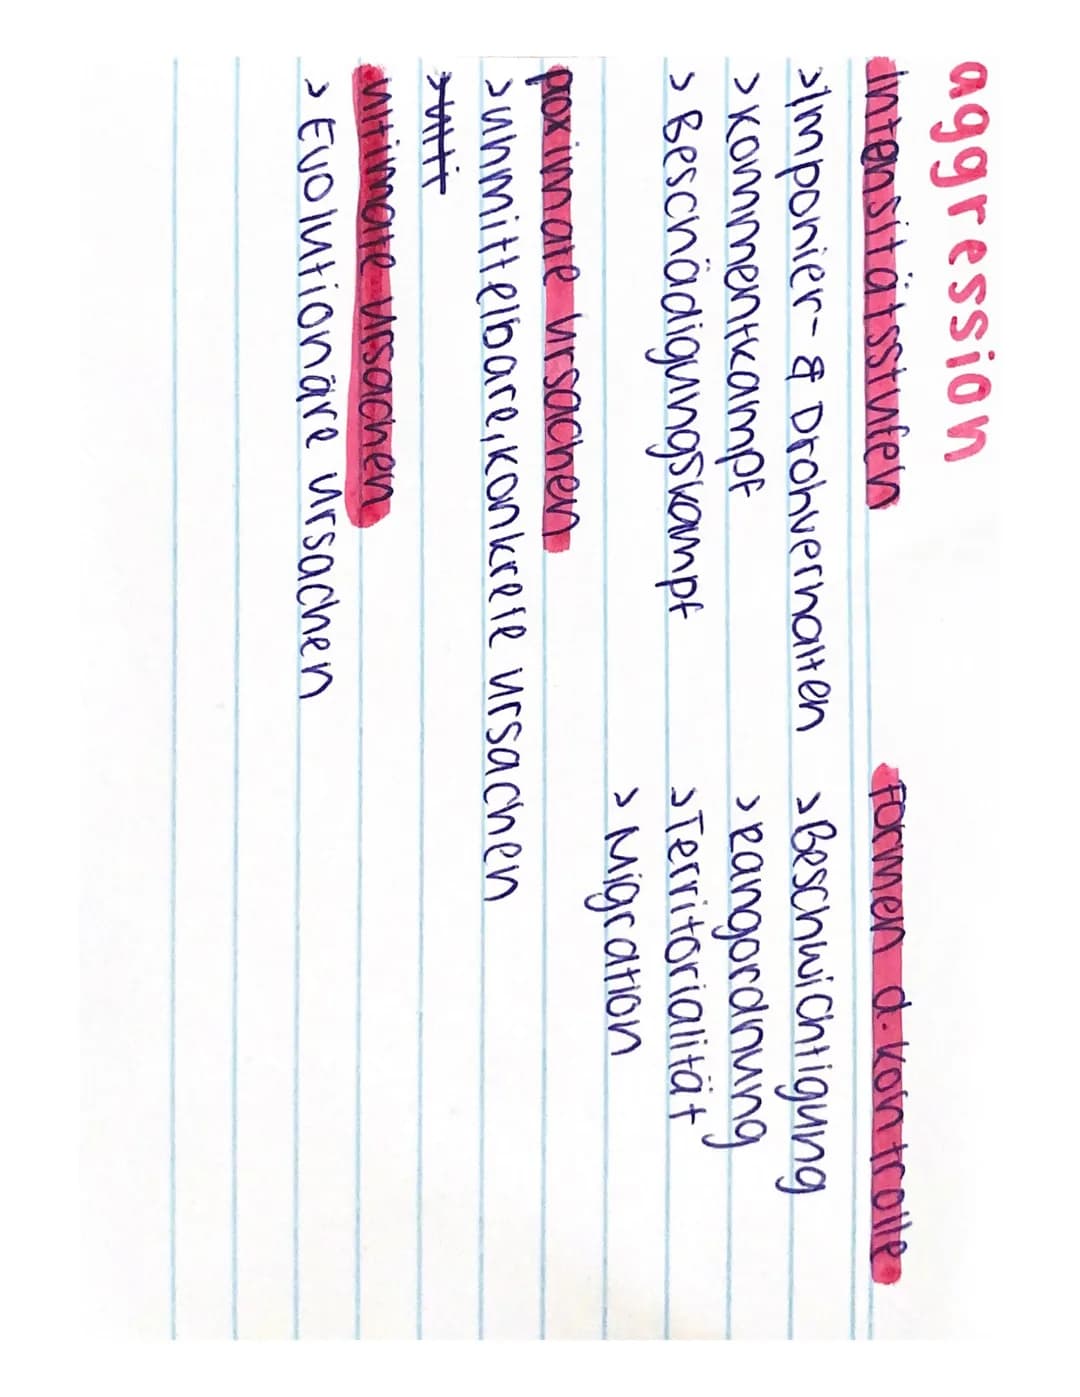 aggression
Intensitätsstufen
>Imponier- & Drohverhalten
> Kommentkampf
> Beschädigungskampf
formen d. kontrolle
> Beschwichtigung
> Rangordnung
> Territorialität
> Migration
proximate Ursachen
> unmittelbare, konkrete Ursachen
> ulti
ultimate Ursachen
> Evolutionäre Ursachen